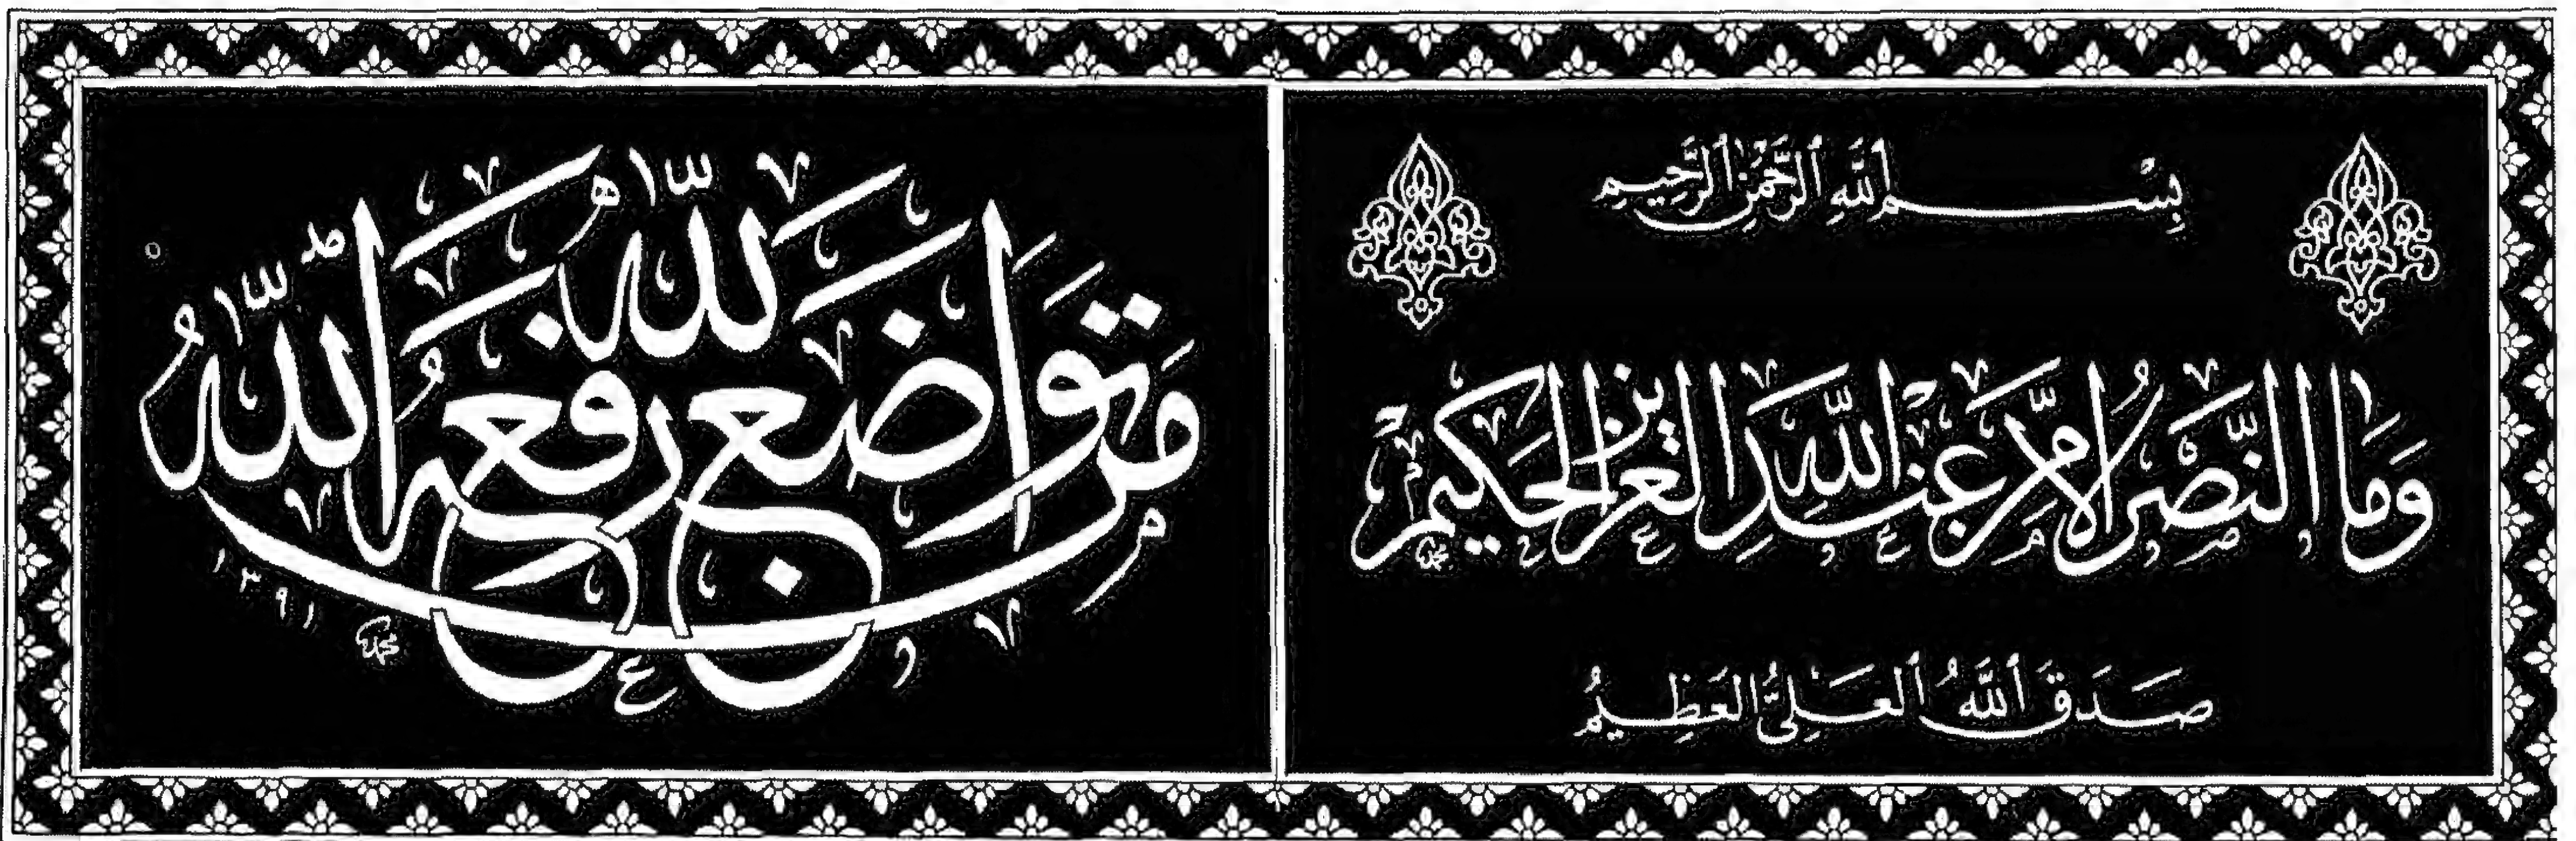 بِسْمِ ٱللَّهِ ٱلرَّحْمَٰنِ ٱلرَّحِيمِ
وَمَا النَّصْرُ إلَّا مِنْ عِنْدِ اللَّهِ الْعَزِيزِ الْحَكِيمِ
محمد
صَدَقَ ٱللَّهُ ٱلعَلِيُّ العَظِيمُ
مَنْ تَوَاضَعَ لِلَّهِ رَفَعَهُ اللَّهُ
محمد ١٣٩١